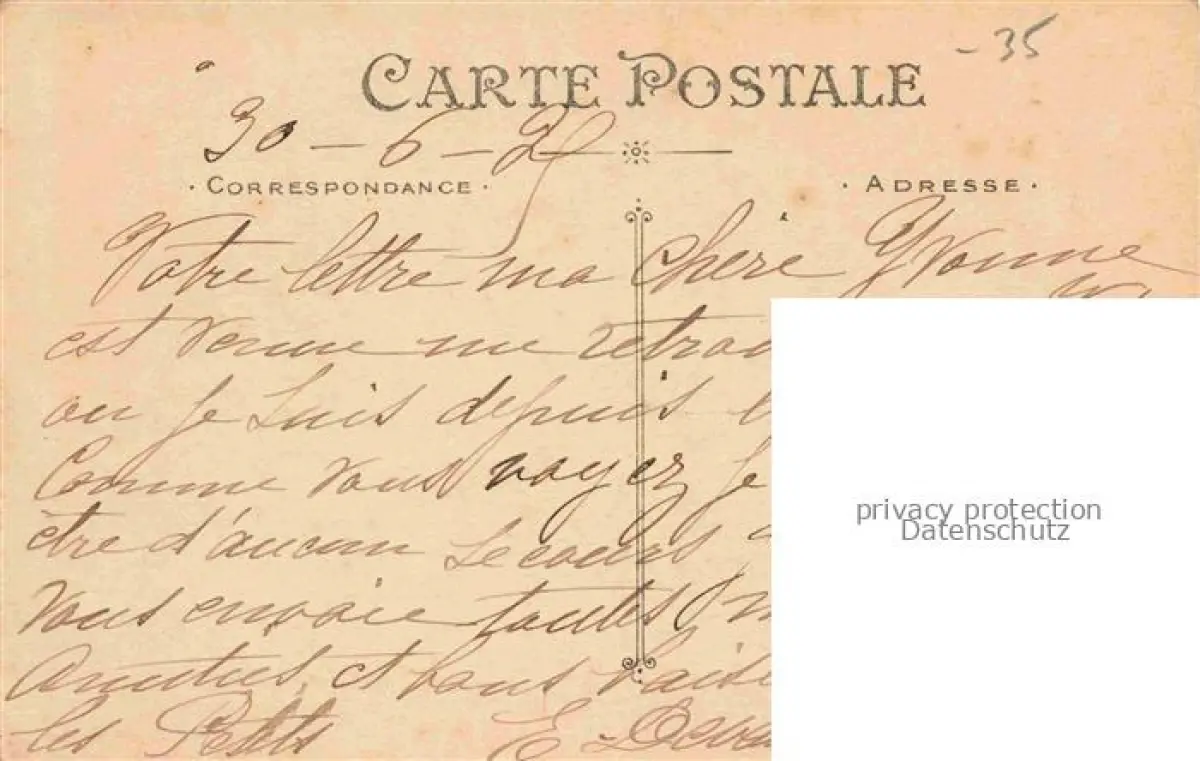 - 35
CARTE POSTALE
30 - 6 - 2
· CORRESPONDANCE ·
· ADRESSE ·
Votre lettre ma chère Yvonne
est venue me retrou
ou je suis depuis
Comme vous voyez je
être d'aucun secours
vous envoie toutes m
Amitiés et bons baise
les Petits E
privacy protection
Datenschutz